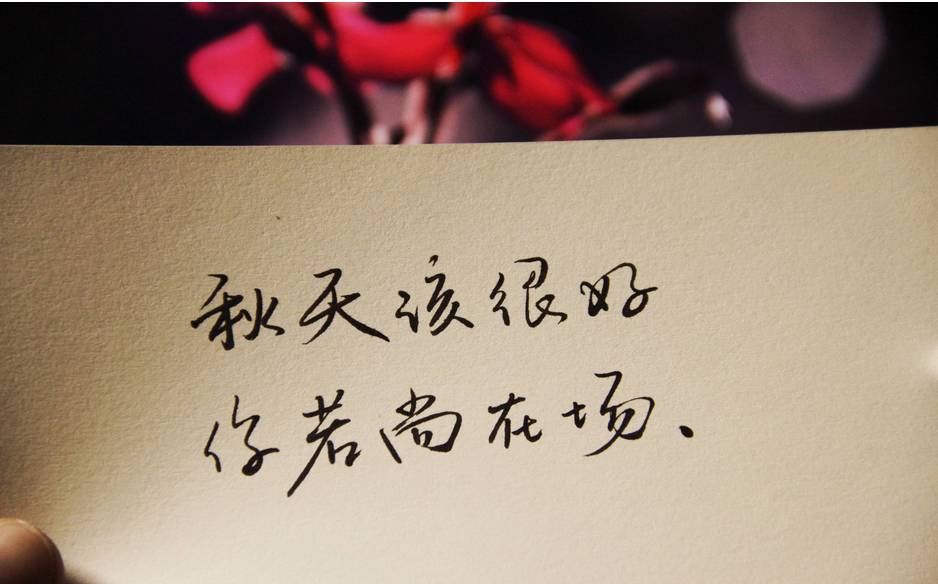 秋天该很好
你若尚在场.